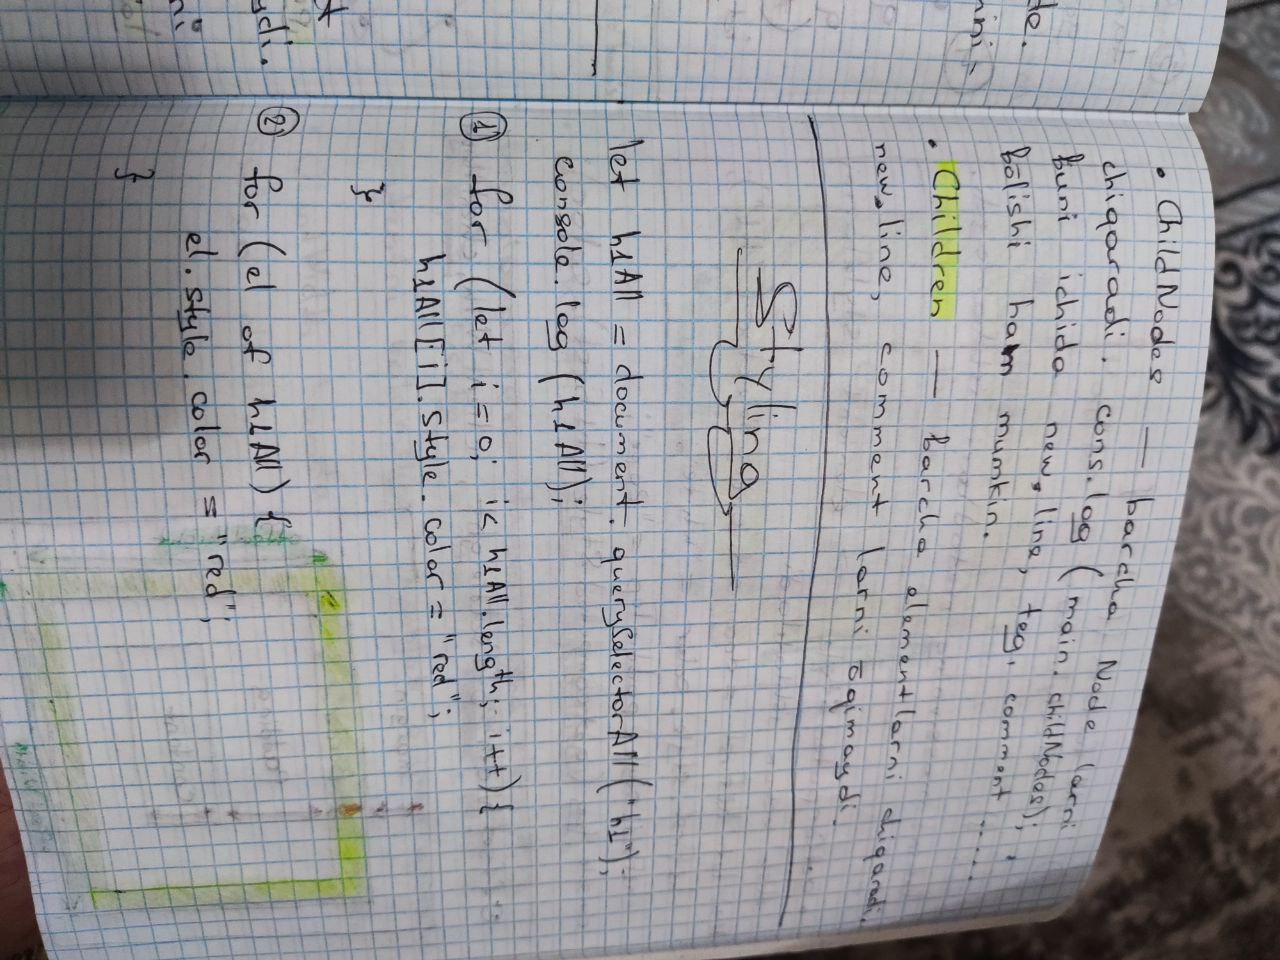 • ChildNodes — barcha Node larni
chiqaradi. cons.log (main.childNodes);
buni ichida new line, teg, comment ....
bōlishi ham mumkin.
• Children — barcha elementlarni chiqaradi,
new line, comment larni ōqimaydi.
Styling
let h1All = document.querySelectorAll("h1");
console.log (h1All);
① for (let i=0; i< h1All.length; i++) {
h1All[i].style.color = "red";
}
② for (el of h1All) {
el.style.color = "red";
}